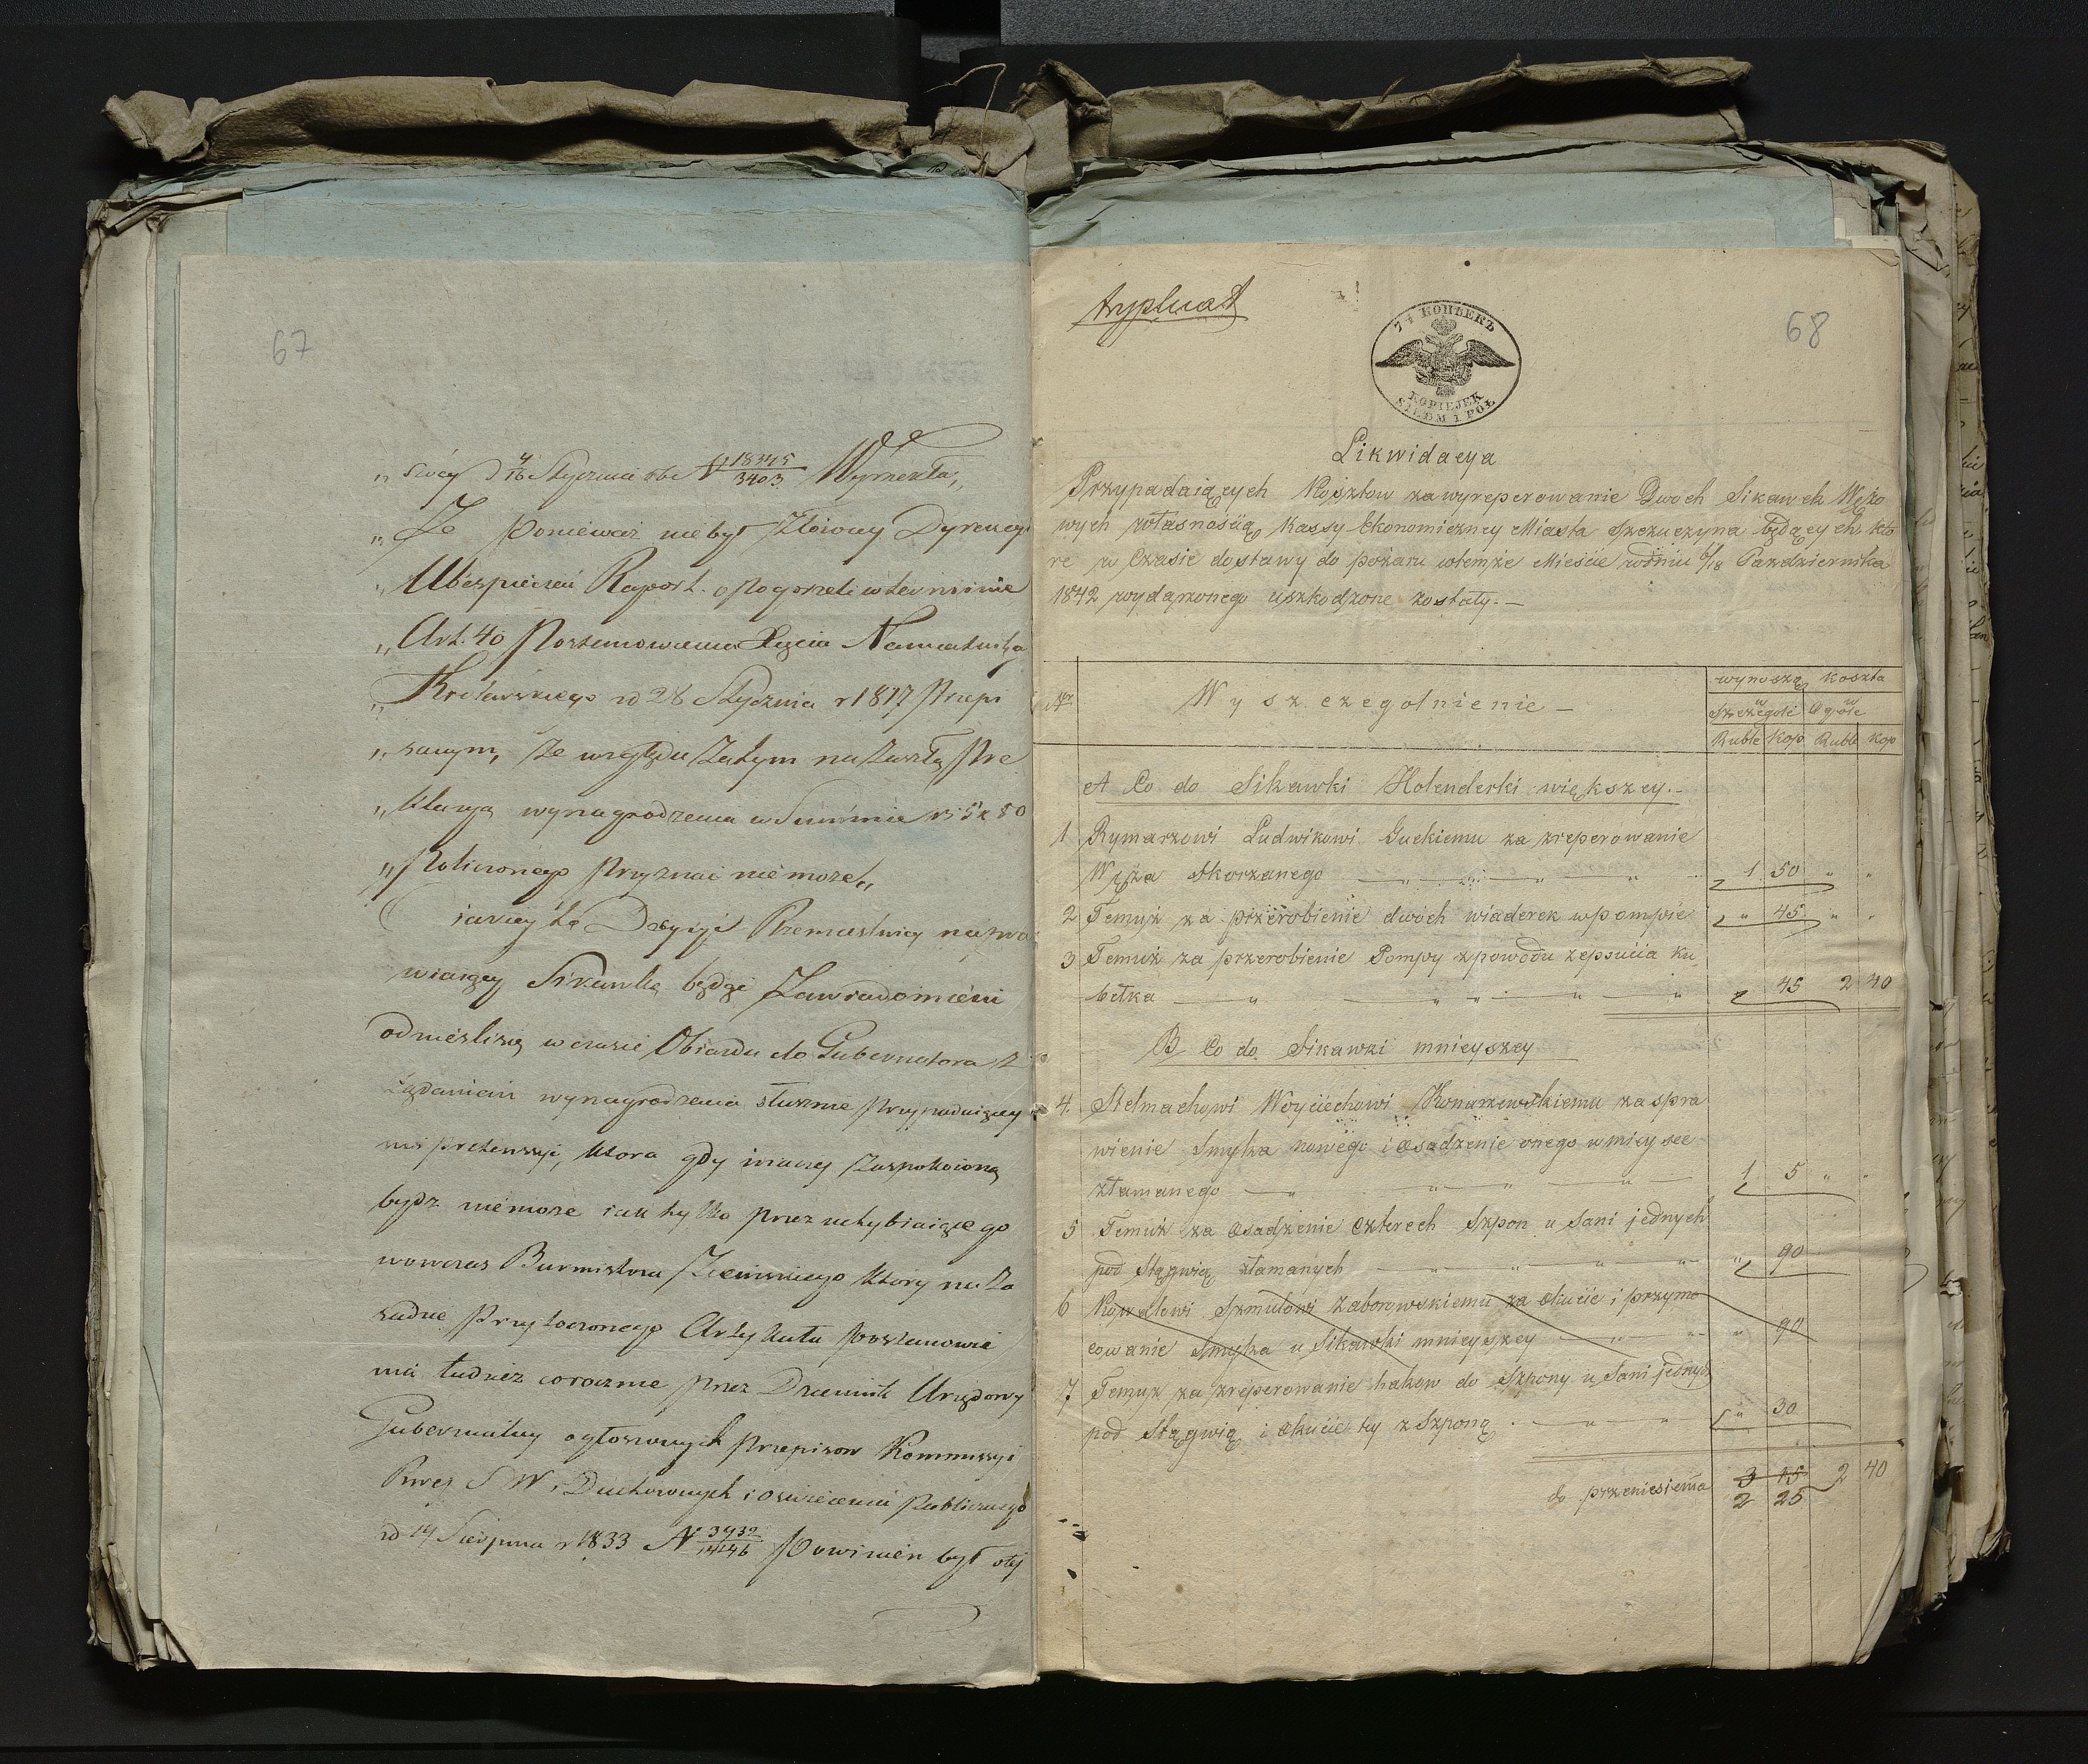 67
„ swéy d 4/16 Stycznia rb N 18345/3403 Wyrzekła„
„ Że ponieważ nie był złożony Dyrekcyi
„ Ubezpieczeń Raport o pogorzeli w terminie
„ Art. 40 Postanowienia Xięcia Namiestnika
„ Królewskiego z d 28 Stycznia r 1817 Przepi
„ sanym, że względu zatym na zaszłą pre
„ kluzyą wynagrodzenia w Summie rs 5 k 80
„ Policzonego przyznać nie może„
iakiey to Decyzyi Rzemieslnicy napra
wiaiący Sikawkę będąc zawiadomieni
odnieśli się w czasie Obiazdu do Gubernatora z
żądaniem wynagrodzenia słusznie przypadaiącey
im pretensyi, która gdy inaczey zaspokoioną
bydz niemoże iak tylko przez uchybiaiącego
wowczas Burmistrza który na za
sadzie przytoczonego Artykułu postanowie
nia tudzież corocznie przez Dziennik Urzędowy
Gubernialny ogłoszonych przepisow Kommissyi
Rząd S W, Duchownych i oswiecenia Publicznego
z d 14 Sierpnia r 1833 N 3932/14146 powinien był otéj
tryplikat
68
7½ КОПѢЕКЪ
KOPIEJEK
SIEDM I PÓŁ
Likwidacya
Przypadaiących Kosztow za wyreperowanie Dwoch Sikawek Wężo
wych własnością Kassy Ekonomiczney Miasta Szczuczyna będących, kto
re w Czasie dostawy do pożaru wtemże Mieście wdniu 6/18 Pazdziernika
1842 wydarzonego uszkodzone zostały. —
wynoszą koszta
Nr Wyszczegolnienie —
w Szczegole w Ogole
Ruble Kop Ruble Kop
A Co do Sikawki Holenderki większey. —
1 Rymarzowi Ludwikowi Guckiemu za zreperowanie
Węża Skorzanego — „ — „ — „ — „ 1 50 „ „
2 Temuż za przerobienie dwóch wiaderek w pompie „ 45 „ „
3 Temuż za przerobienie Pompy z powodu zepsucia ku
bełka — „ — „ „ — „ — „ „ 45 2 40
B Co do Sikawki mnieyszey
4. Stelmachowi Woyciechowi Konarzewskiemu za spra
wienie Smyka nowego i osadzenie onego w mieysce
złamanego — „ — „ — „ — „ — 1 5 „ „
5 Temuż za Osadzenie Czterech Szpon u Sani jednych
pod Stągwią złamanych — „ — „ — „ „ 90
6 Kowalowi Szmulowi Zaborowskiemu za okucie i przymo
cowanie Smyka u Sikawki mnieyszey — „ — „ „ 90
7 Temuż za zreperowanie hakow do Szpony u Sani jednych
pod Stągwią i okucie tey z Szponą . — „ — „ „ 30
do przeniesienia 3 15 2 40
2 25